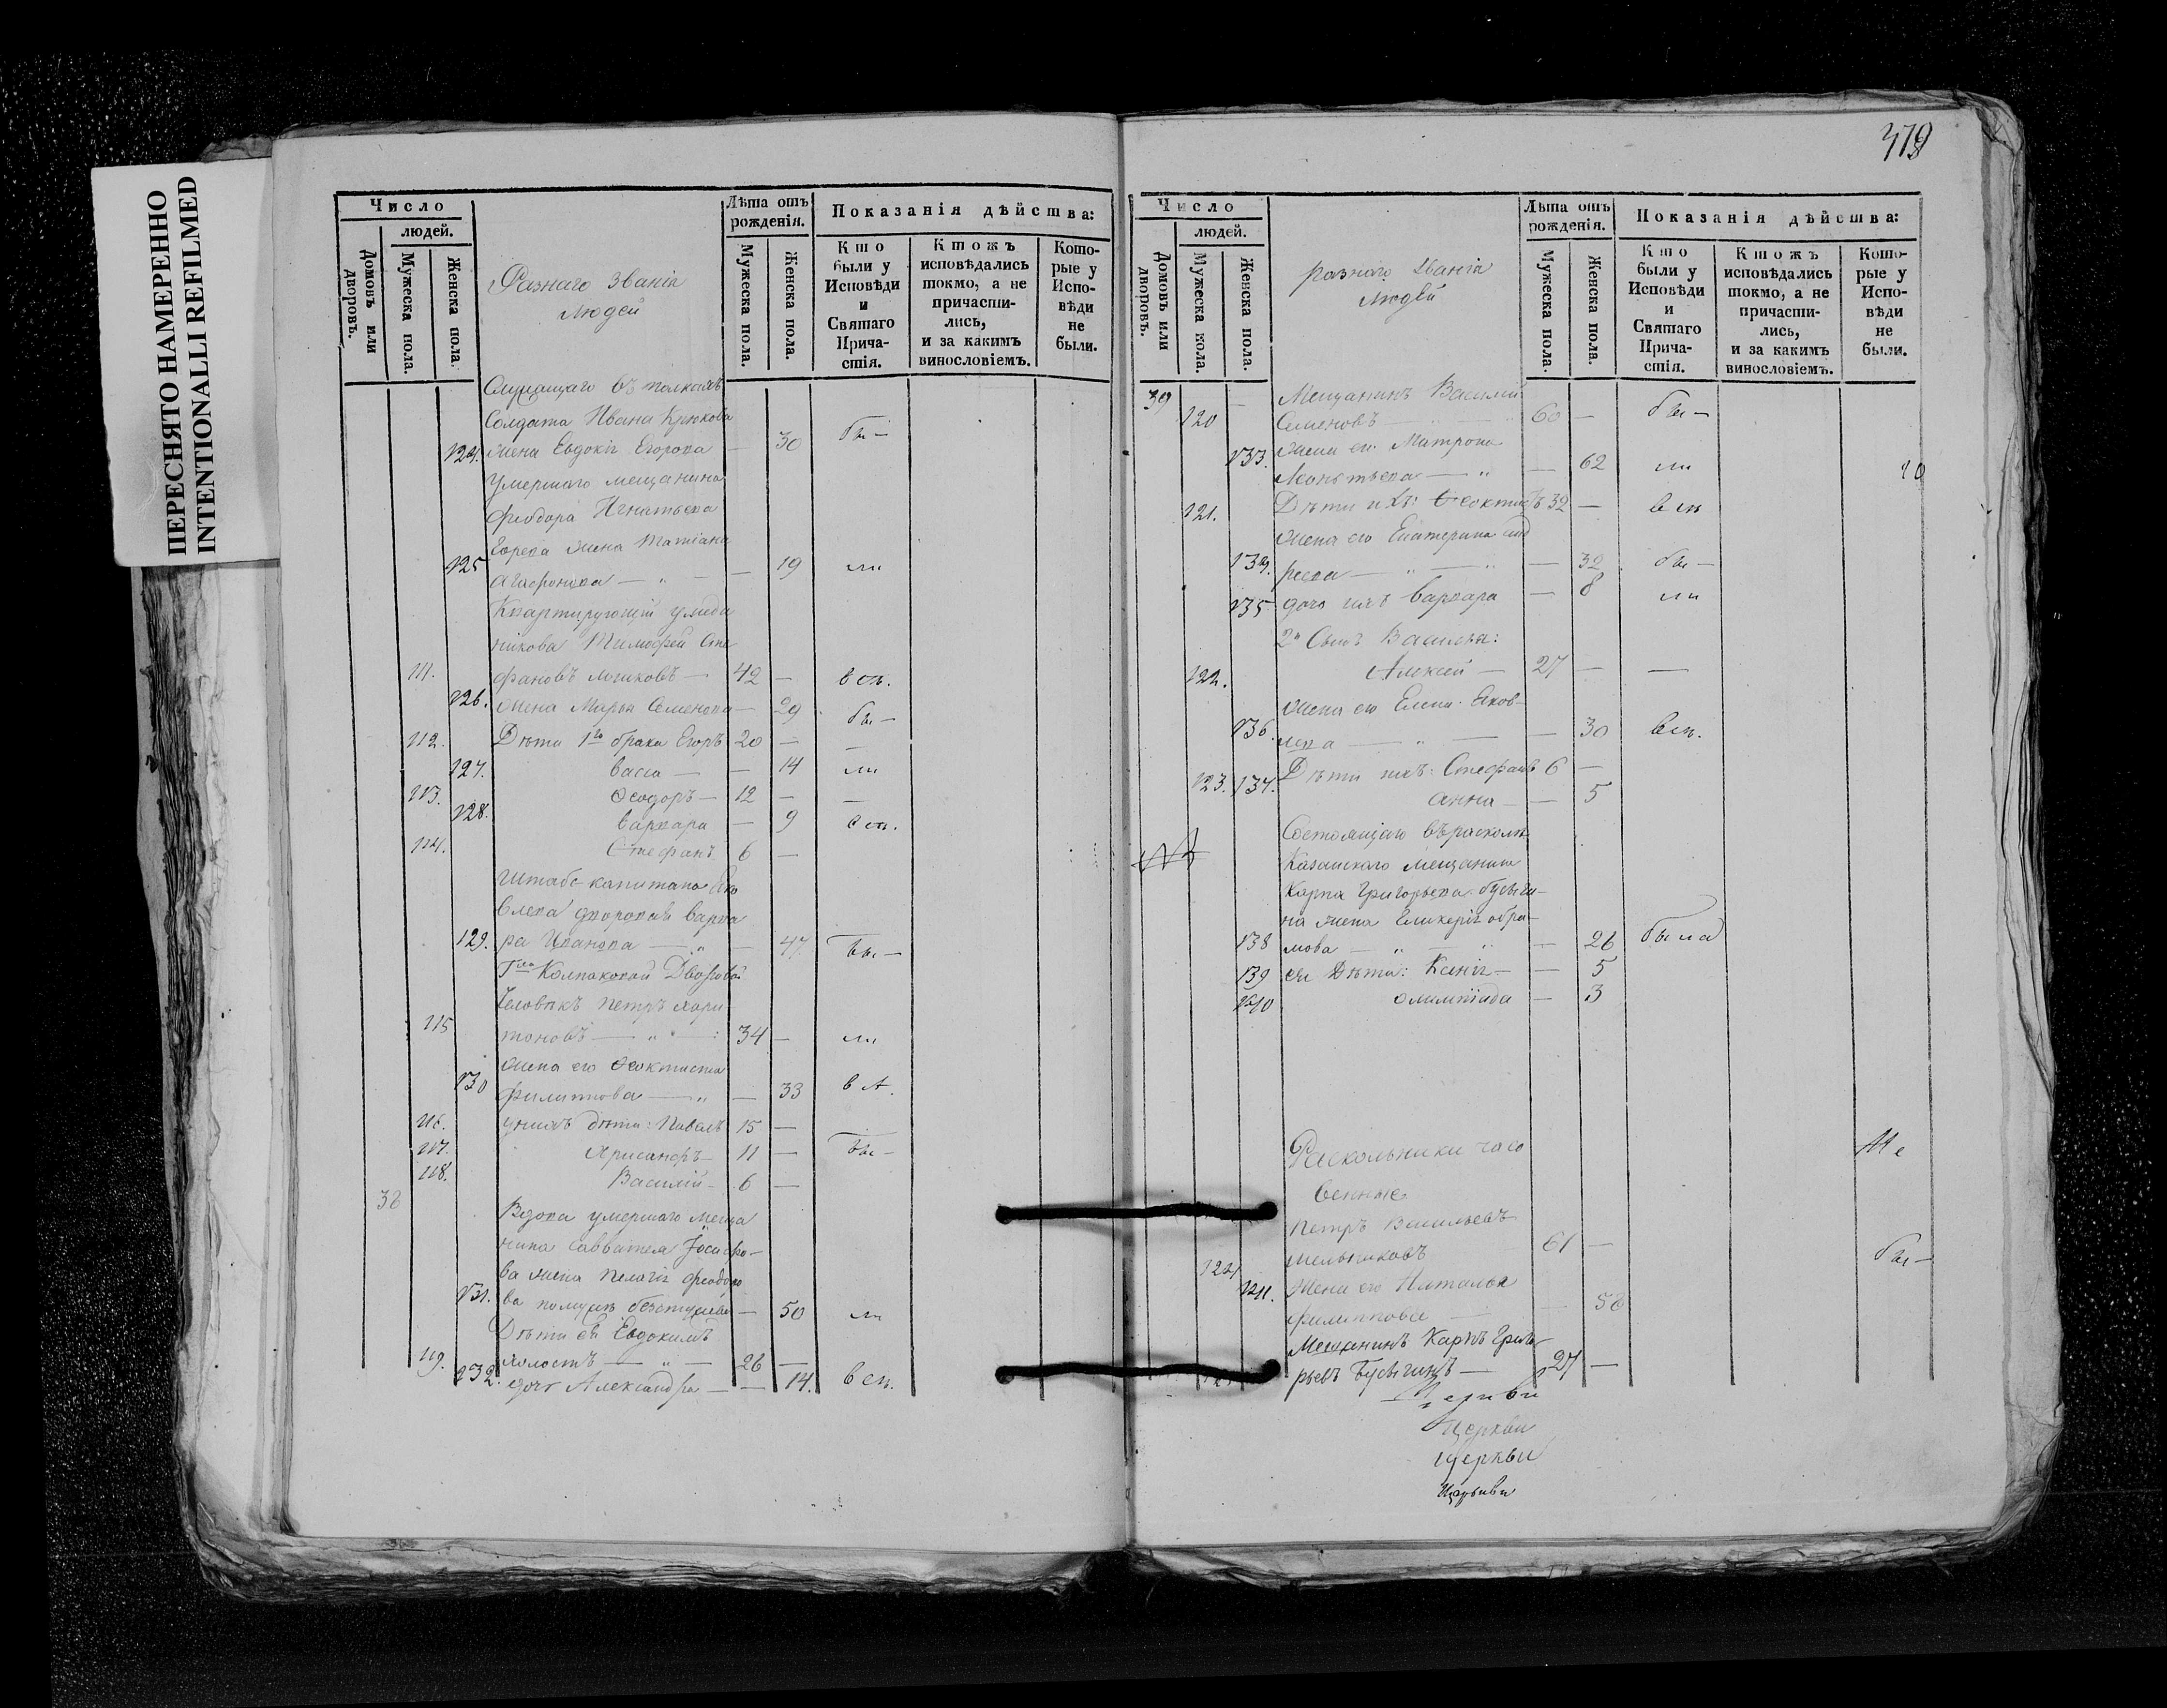 ПЕРЕСНЯТО НАМЕРЕННО
INTENTIONALLI REFILMED
Число
людей.
Домовъ или дворовъ.
Мужеска пола.
Женска пола.
Разнаго Званія
Людей
Лѣта отъ рожденія.
Мужеска пола.
Женска пола.
Показанія дѣйства:
Кто были у Исповѣди и Святаго Прича-стія.
Ктожъ исповѣдались токмо, а не причасти-лись, и за какимъ винословіемъ.
Кото-рые у Испо-вѣди не были.
Служащаго въ полкахъ
Солдата Ивана Крюкова
124. жена Евдокія Егорова — 30 бы —
Умершаго мещанина
Феодора Игнатьева
жена Татіана
125 Агафонова — " — — 19 ли
Квартирующій у
Тимофей Сте
111. фановъ — 42 — всѣ.
126. Жена Марья Семенова — 29 бы —
112. Дѣти 1го брака Егоръ 20 — —
127. Васса — — 14 ли
113. Ѳеодоръ — 12 — —
128. Варвара — 9 всѣ.
114. Стефанъ 6 —
Штабс-капитана Яко
влева дворовая Варва
129. ра Иванова — " — 47. Бы —
Гжи Колпаковой Дворовой
Человѣкъ Петръ Хари
115 тоновъ — " — 34 — ли
Жена его Ѳеоктиста
130 Филиппова — " — 33 в
116. у нихъ дѣти: Павелъ 15 —
117. Хрисанфъ — 11 — Бы —
118. Василій — 6 —
38 Вдова умершаго меща
нина Савватея Іосифо-
ва жена Пелагія Феодоро
131. ва — 50 ли
Дѣти ея Евдокимъ
119. холостъ — " — 26 —
132. дочь Александра — — 14. всѣ.
Число
людей.
Домовъ или дворовъ.
Мужеска пола.
Женска пола.
разнаго Званія
людей
Лѣта отъ рожденія.
Мужеска пола.
Женска пола.
Показанія дѣйства:
Кто были у Исповѣди и Святаго Прича-стія.
Ктожъ исповѣдались токмо, а не причасти-лись, и за какимъ винословіемъ.
Кото-рые у Испо-вѣди не были.
39 — Мещанинъ Василій
120 Семеновъ — 60 — бы —
133. Жена его Матрона
Леонтьева — " — 62 ли
121. Дѣти ихъ: Ѳеоктистъ 32 — всѣ
Жена его Екатерина Анд
134. реева — " — " — 32 бы —
135. дочь ихъ Варвара — 8 ли
2й Сынъ Василья:
122. Алексей — 27 — —
Жена его Елена Яков-
136. лева — " — — 30 всѣ.
123. 137. Дѣти ихъ: Стефанъ 6 —
Анна — — 5
Состоящаго въ расколѣ
Казанскаго мещанина
Карпа Григорьева Бусыги-
на жена Гликерія Абра-
138 мова — " — " — 26 была
139 ея Дѣти: Ксенія — — 5
140 Олимпіада — 3
Раскольники часо Не
венные
Петръ Васильевъ
124 Мельниковъ 61 — бы —
141. Жена его Наталья
Филиппова — — 58
Мещанинъ Карпъ Григо
рьевъ Бусыгинъ — 27 —
Церкви
Церкви
Церкви